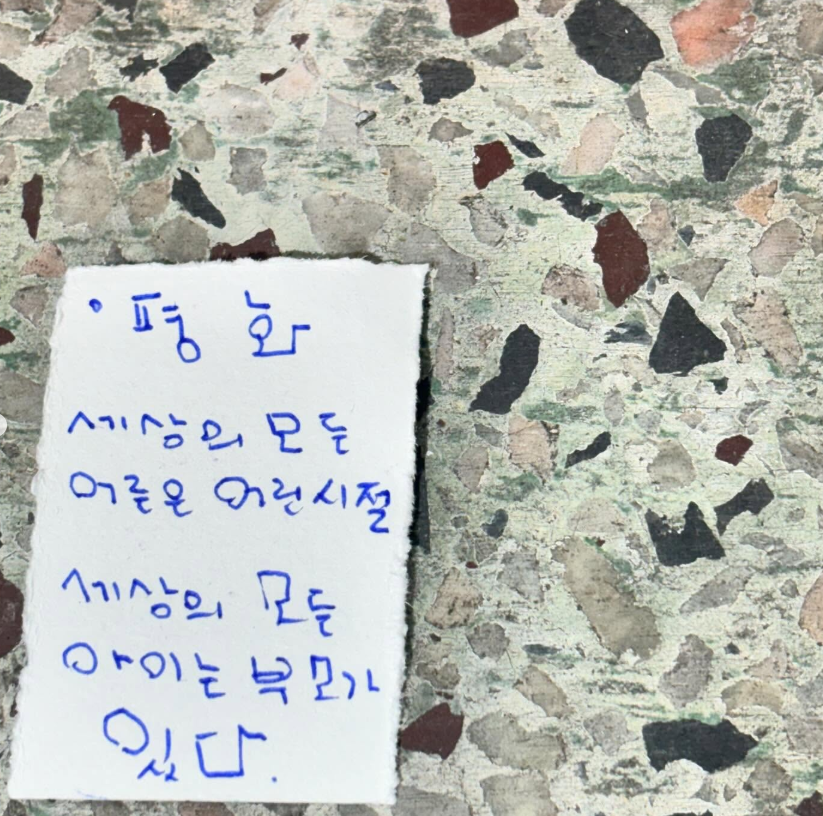 • 평 화
세상의 모든
어른은 어린시절
세상의 모든
아이는 부모가
있다.